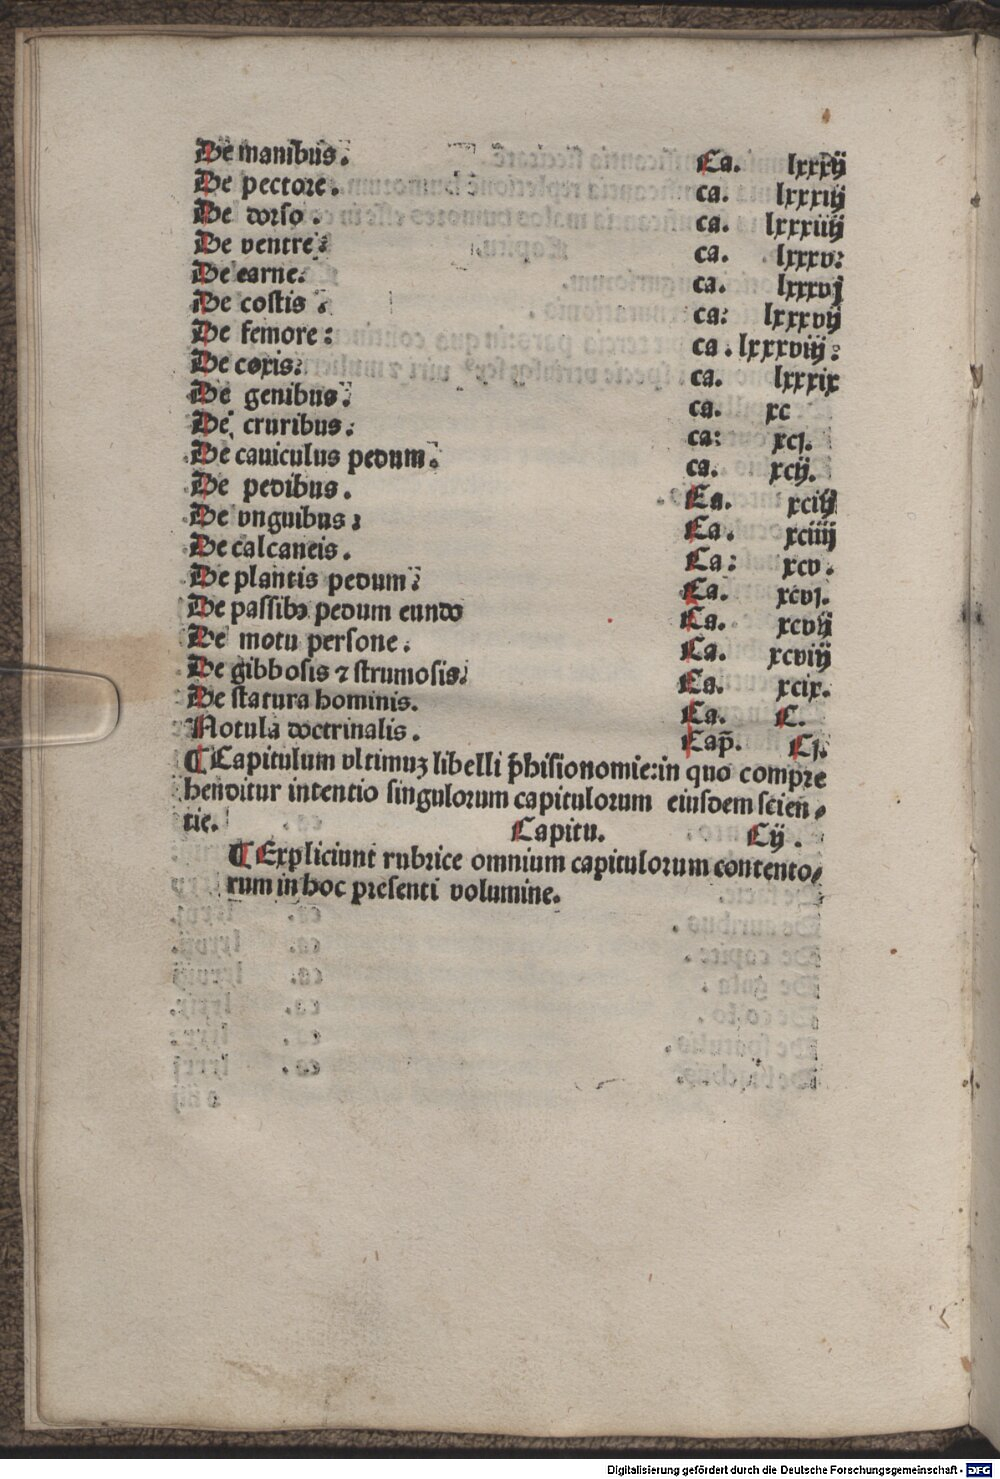 De manibus. Ca. lxxxij
De pectore. ca. lxxxiij
De dorso. ca. lxxxiiij
De ventre: ca. lxxxv:
De carne: ca. lxxxvj
De costis : ca: lxxxvij
De femore: ca. lxxxviij:
De coxis: ca. lxxxix
De genibus: ca. xc
De cruribus: ca: xcj.
De cauiculus pedum. ca. xcij.
De pedibus. Ca. xciij
De vnguibus: Ca. xciiij
De calcaneis. Ca: xcv.
De plantis pedum: Ca. xcvj.
De passibꝰ pedum eundo Ca. xcvij
De motu persone. Ca. xcviij
De gibbosis ⁊ strumosis: Ca. xcix.
De statura hominis. Ca. C.
Notula doctrinalis. Cap̄. Cj.
¶ Capitulum vltimuꝫ libelli p̄hisionomie: in quo compre
henditur intentio singulorum capitulorum eiusdem scien⸗
tie. Capitu. Cij.
¶ Expliciunt rubrice omnium capitulorum contento⸗
rum in hoc presenti volumine.
Digitalisierung gefördert durch die Deutsche Forschungsgemeinschaft - DFG